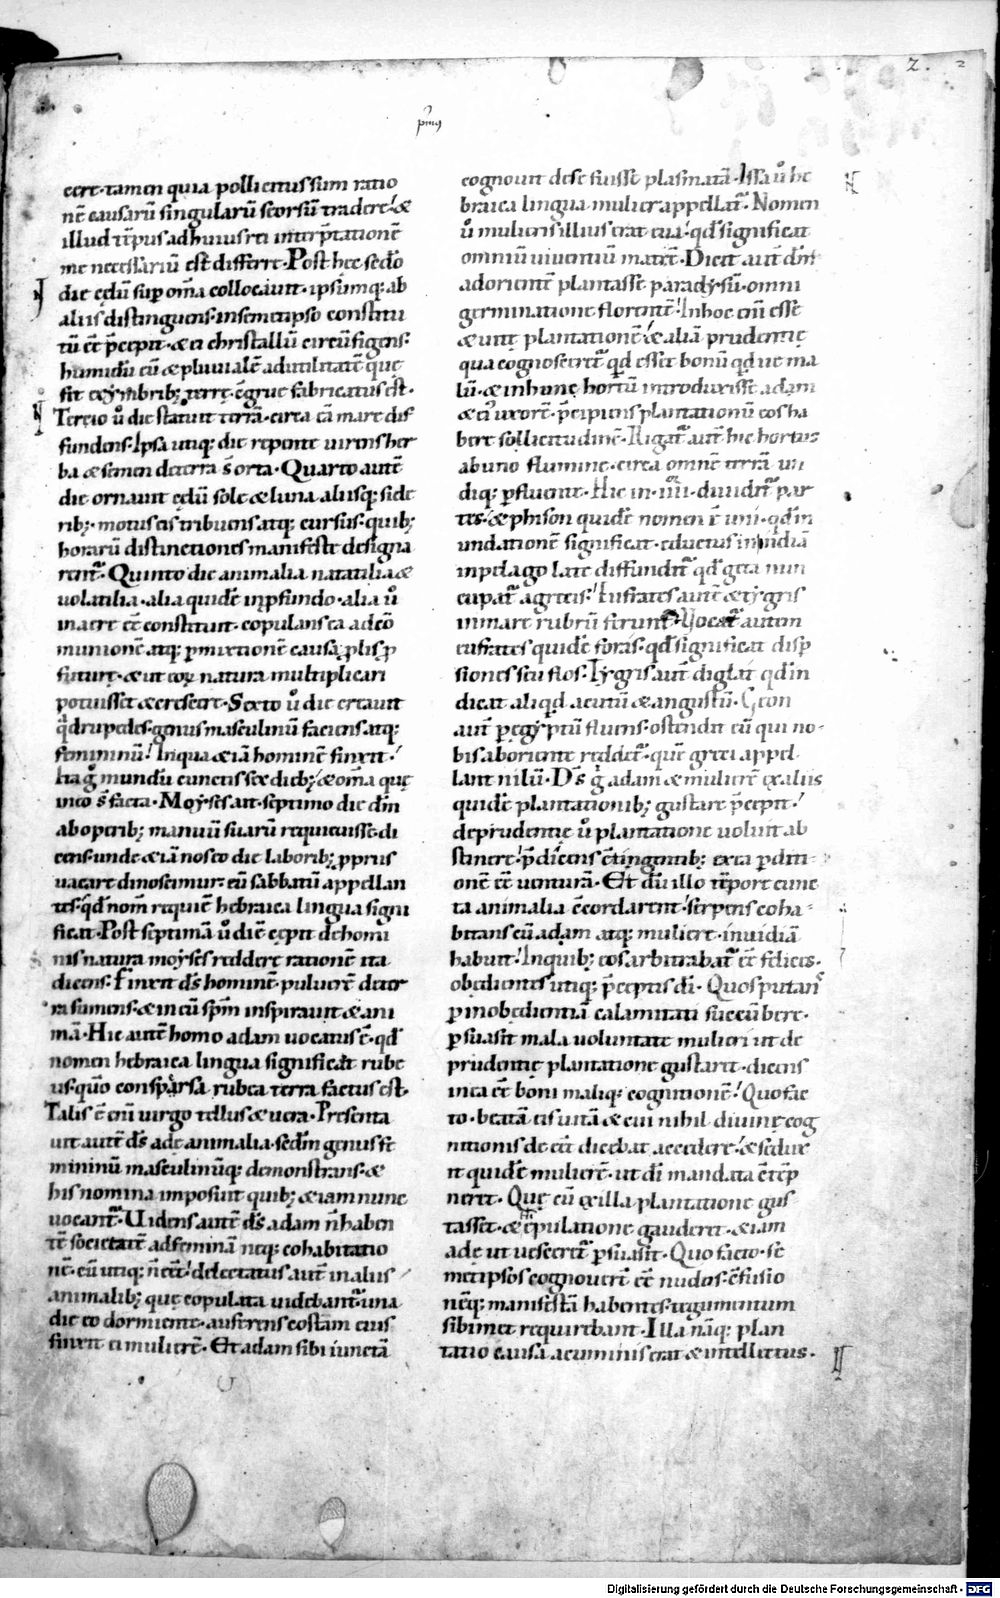 2. 2
pm9
cere· tamen quia pollicitus sum ratio
nē causarū singularū seorsū tradere! &
illud tēpus ad huius rei interp̄tationē
me necessariū est̄ differre· Post hęc sedo
die cęlū sup om̄a collocauit· ipsumq; ab
aliis distinguens· in semetipso constitu
tū eē p̄cepit· & ei christallū circūfigens·
humidū eū & pluuialē ad utilitatē quę
fit ex ymbrib; terrę c̄grue fabricatus est·
Tercio ū die statuit terrā· circa eā mare dif
fundens· Ipsa utiq; die repente uirens her
ba & semen de terra s̄ orta· Quarto autē
die ornauit cęlū sole & luna aliisq; side
rib;· motus eis tribuens atq; cursus· quib;
horarū distinctiones manifeste designa
rent᷑· Quinto die animalia natatilia &
uolatilia· alia quidē in pfundo· alia ū
in aere eē constituit· copulans ea ad cō
munionē atq; pmixtionē causa plis p
futurę· & ut eoꝝ natura multiplicari
potuisset & cresceret· Sexto ū die creauit
qdrupedes· genus masculinū faciens atq;
femininū! In qua & iā hominē finxit!
hac g mundū cunctis sex dieb; & om̄a quę
in eo s̄ facta· Moyses ait· septimo die dm̄
ab operib; manuū suarū requieuisse· di
cens· unde & iā nos eo die laborib; pprius
uacare dinoscimur· eū sabbatū appellan
tes· qd̄ nom̄ requiē hebraica lingua signi
ficat· Post septimā ū diē cępit de homi
nis natura moyses reddere rationē ita
dicens· Finxit ds̄ hominē· puluerē de ter
ra sumens· & in eū spm̄ inspirauit & ani
mā· Hic autē homo adam uocatus ē· qd̄
nomen hebraica lingua significat rube
us· qm̄o consparsa rubea terra factus est·
Talis ē eni uirgo tellus & uera· Presenta
uit autē ds̄ adę animalia· sedm̄ genus fe
mininū masculinūq; demonstrans· &
his nomina imposuit quib; & iam nunc
uocant᷑· Uidens autē ds̄ adam n̄ haben
tē societatē ad feminā neq; cohabitatio
nē· eū utiq; n̄ eēt! delectatus autē in aliis
animalib; quę copulata uidebant᷑· una
die eo dormiente· auferens costam eius
finxit ei mulierē· Et adam sibi iunctā
cognouit de se fuisse plasmatā· Issa ū he
braica lingua mulier appellat᷑· Nomen
ū mulieris illius erat eua! qd̄ significat
omniū uiuentiū matrē· Dicit aut dm̄
ad orientē plantasse paradysū· omni
germinatione florentē! In hoc eni esse
& uitę plantationē! & aliā prudentię
qua cognosceret᷑ qd esset bonū qd ue ma
lū· & in hunc hortū introduxisse adam
& ei uxorē· p̄cipiens plantationū eos ha
bere sollicitudinē· Rigat᷑ aut hic hortus
ab uno flumine· circa omnē terrā un
diq; pfluente· Hic in· IIII· diuidit᷑ par
tes· & phison quidē nomen ē uni· qd̄ in
undationē significat· eductus in indiā
in pelago late diffundit᷑ qd̄ geta nun
cupat᷑ a grecis! Eufrates autē & tygris
in mare rubrū ferunt᷑· Uocat᷑ autem
eufrates quidē foras· qd̄ significat disp
siones seu flos· Tygris aut diglat qd̄ in
dicat aliqd acutū & angustū· Geon
aut p egyptū fluens· ostendit eū qui no-
bis ab oriente reddet᷑· quē greci appel
lant nilū· Ds̄ g adam & mulierē ex aliis
quidē plantationib; gustare p̄cepit!
de prudentię ū plantatione uoluit ab
stinere! p̄dicens c̄tingentib; ex ea pditi-
onē eē uenturā· Et dū illo tēpore cunc
ta animalia c̄cordarent· serpens coha-
bitans eū adam atq; muliere· inuidiā
habuit! In quib; eos arbitrabat᷑ eē felices·
obedientes utiq; p̄ceptis di· Quos putans
p inobedientiā calamitati succūbere·
psuasit mala uoluntate mulieri ut de
prudentię plantatione gustaret· dicens
in ea eē boni maliq; cognitionē! Quo fac
to· beatā eis uitā & cui nihil diuinę cog
nitionis deeēt dicebat accedere! & sedux
it quidē mulierē· ut di mandata c̄tēp
neret· Quę eū ex illa plantatione gus
tasset· & epulatione gauderet· & iam
adę ut uesceret᷑ psuasit· Quo facto· se
metipsos cognouerē eē nudos· c̄fusio
nēq; manifestā habentes· tegumentum
sibimet requirebant· Illa nāq; plan
tatio causa acuminis erat & intellectus·
Digitalisierung gefördert durch die Deutsche Forschungsgemeinschaft - DFG